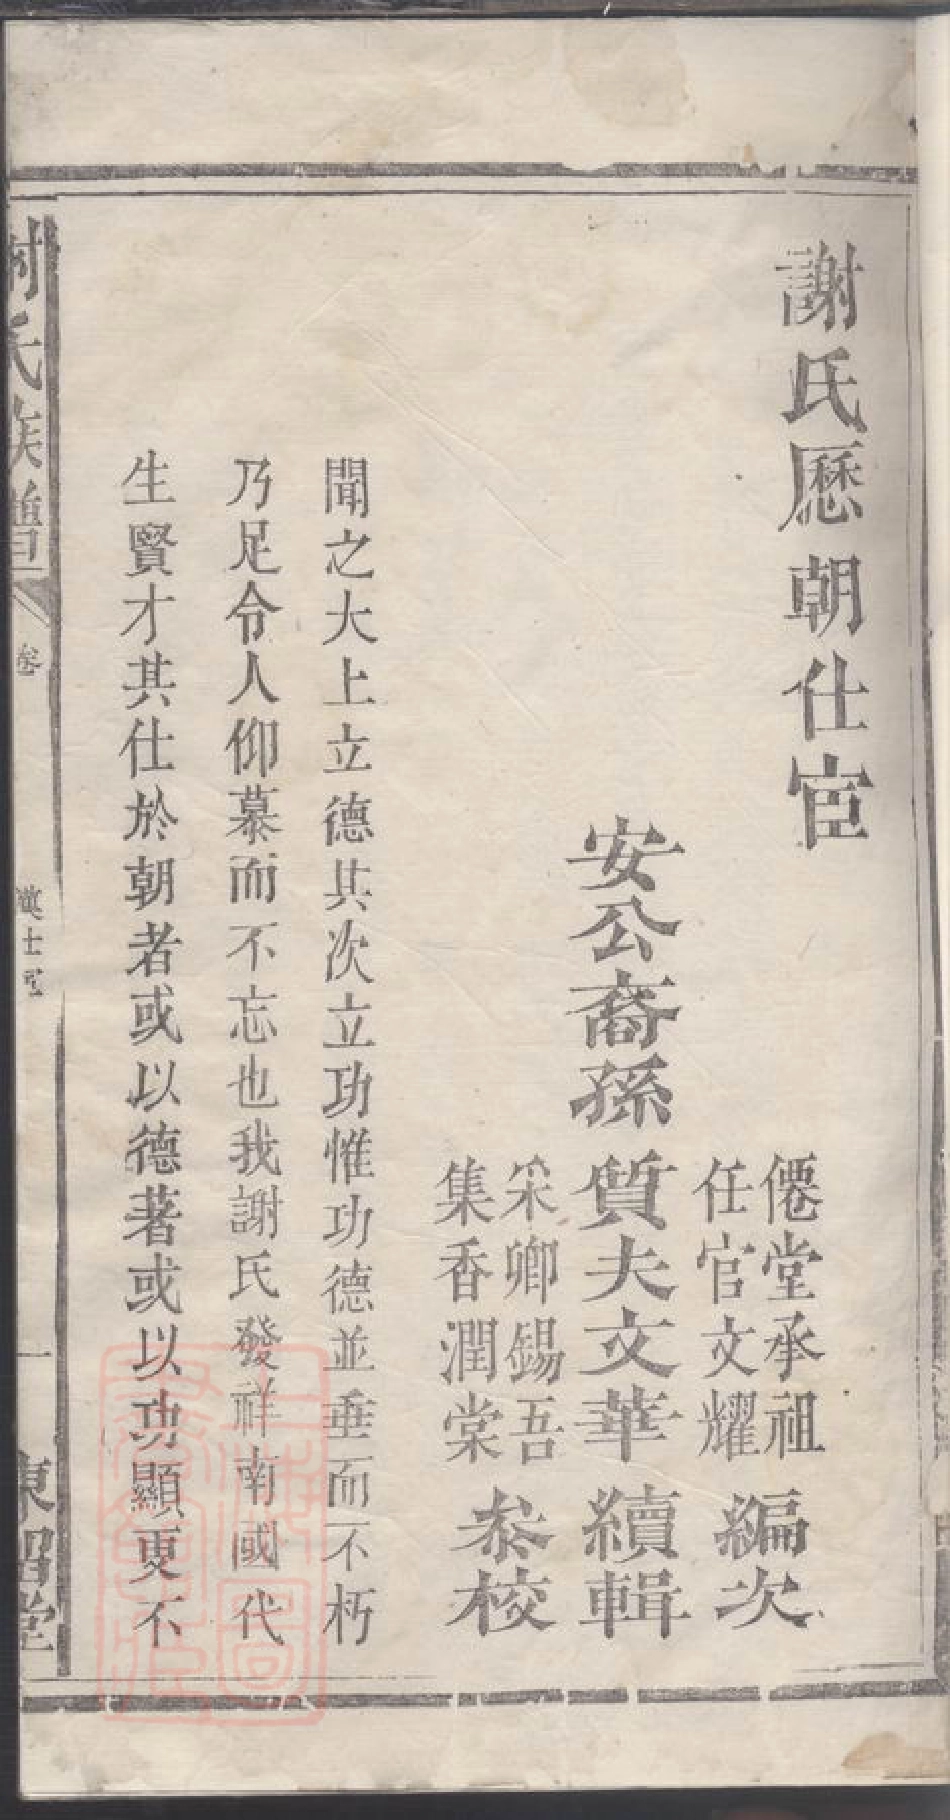 謝氏歷朝仕宦
僊堂承祖
任官文耀
編次
安公裔孫質夫文華續輯
采卿錫吾
集香潤棠
叅校
聞之大上立德其次立功惟功德並垂而不朽
乃足令人仰慕而不忘也我謝氏發祥南國代
生賢才其仕於朝者或以德著或以功顯更不
謝氏族譜
卷
一
東昭堂
上海圖書館藏